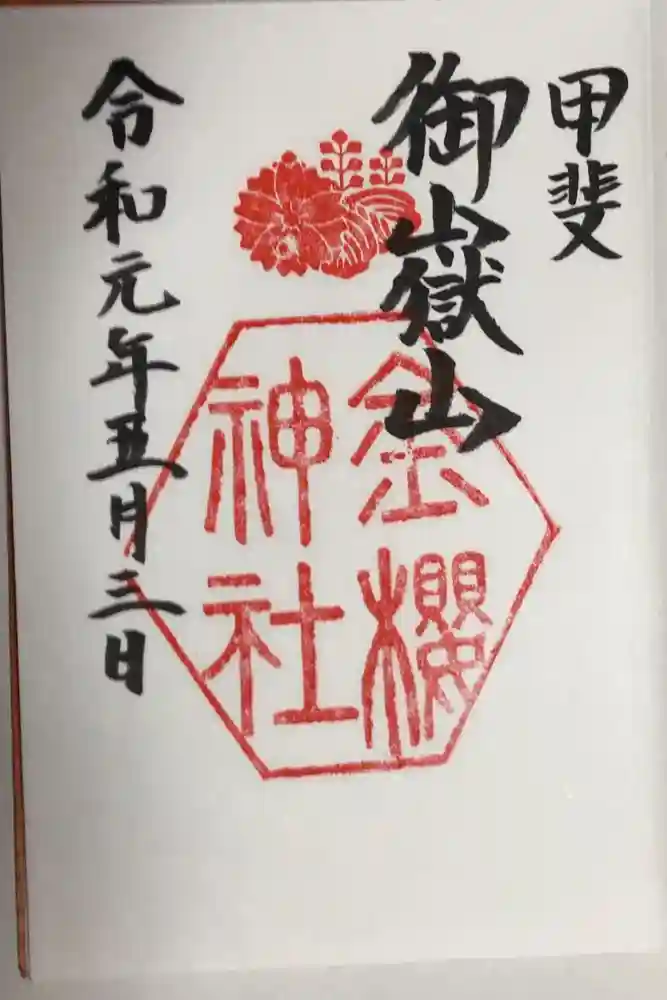 甲斐
御嶽山
金櫻
神社
令和元年五月三日